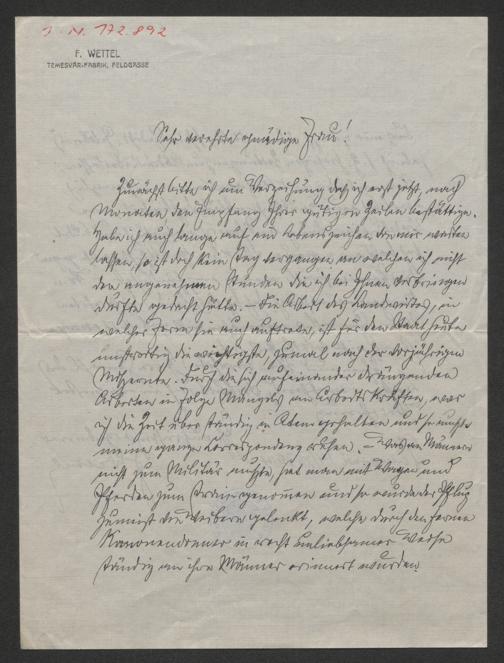 J. N. 172.892
F. WETTEL
TEMESVÁR-FABRIK, FELDGASSE
Sehr verehrte gnädige Frau!
Zunächst bitte ich um Verzeihung daß ich erst jetzt, nach
Monaten den Empfang Ihrer gütigen Zeilen bestättige.
Habe ich auch lange auf ein Lebenszeichen von mir warten
lassen, so ist doch kein Tag vergangen an welchen ich nicht
den angenehmen Stunden die ich bei Ihnen verbringen
durfte gedacht hätte. – Die Arbeit des Landwirtes, in
welcher Form sie auch auftrete, ist für den Staat heute
unstreitig die wichtigste, zumal nach der vorjährigen
Mißernte. Durch die sich aufeinander drängenden
Arbeiten in Folge Mangels an Arbeitskräften, war
ich die Zeit über ständig in Atem gehalten und so mußte
meine ganze Correspondenz ruhen. – Was an Männern
nicht zum Militär mußte, hat man mit Wagen und
Pferden zum Train genommen und so wurde der Pflug
zumeist von Weibern gelenkt, welche durch den fernen
Kanonendonner in recht unliebsamer Weise
ständig an ihre Männer erinnert wurden.